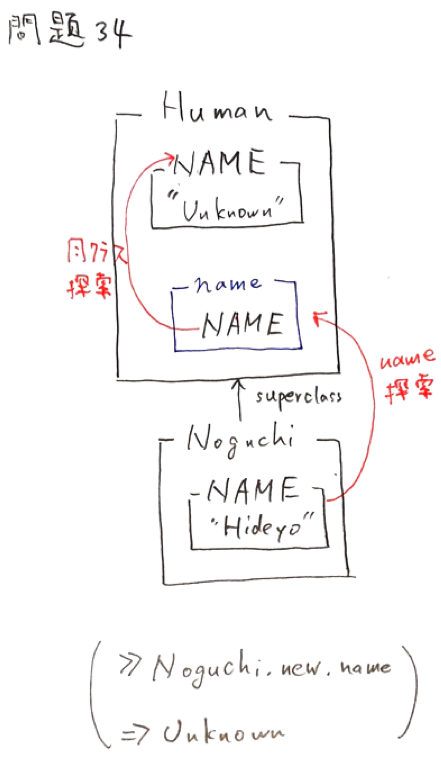 問題34
Human
NAME
"Unknown"
同クラス
探索
name
NAME
name
探索
superclass
Noguchi
NAME
"Hideyo"
≫ Noguchi.new.name
=> Unknown